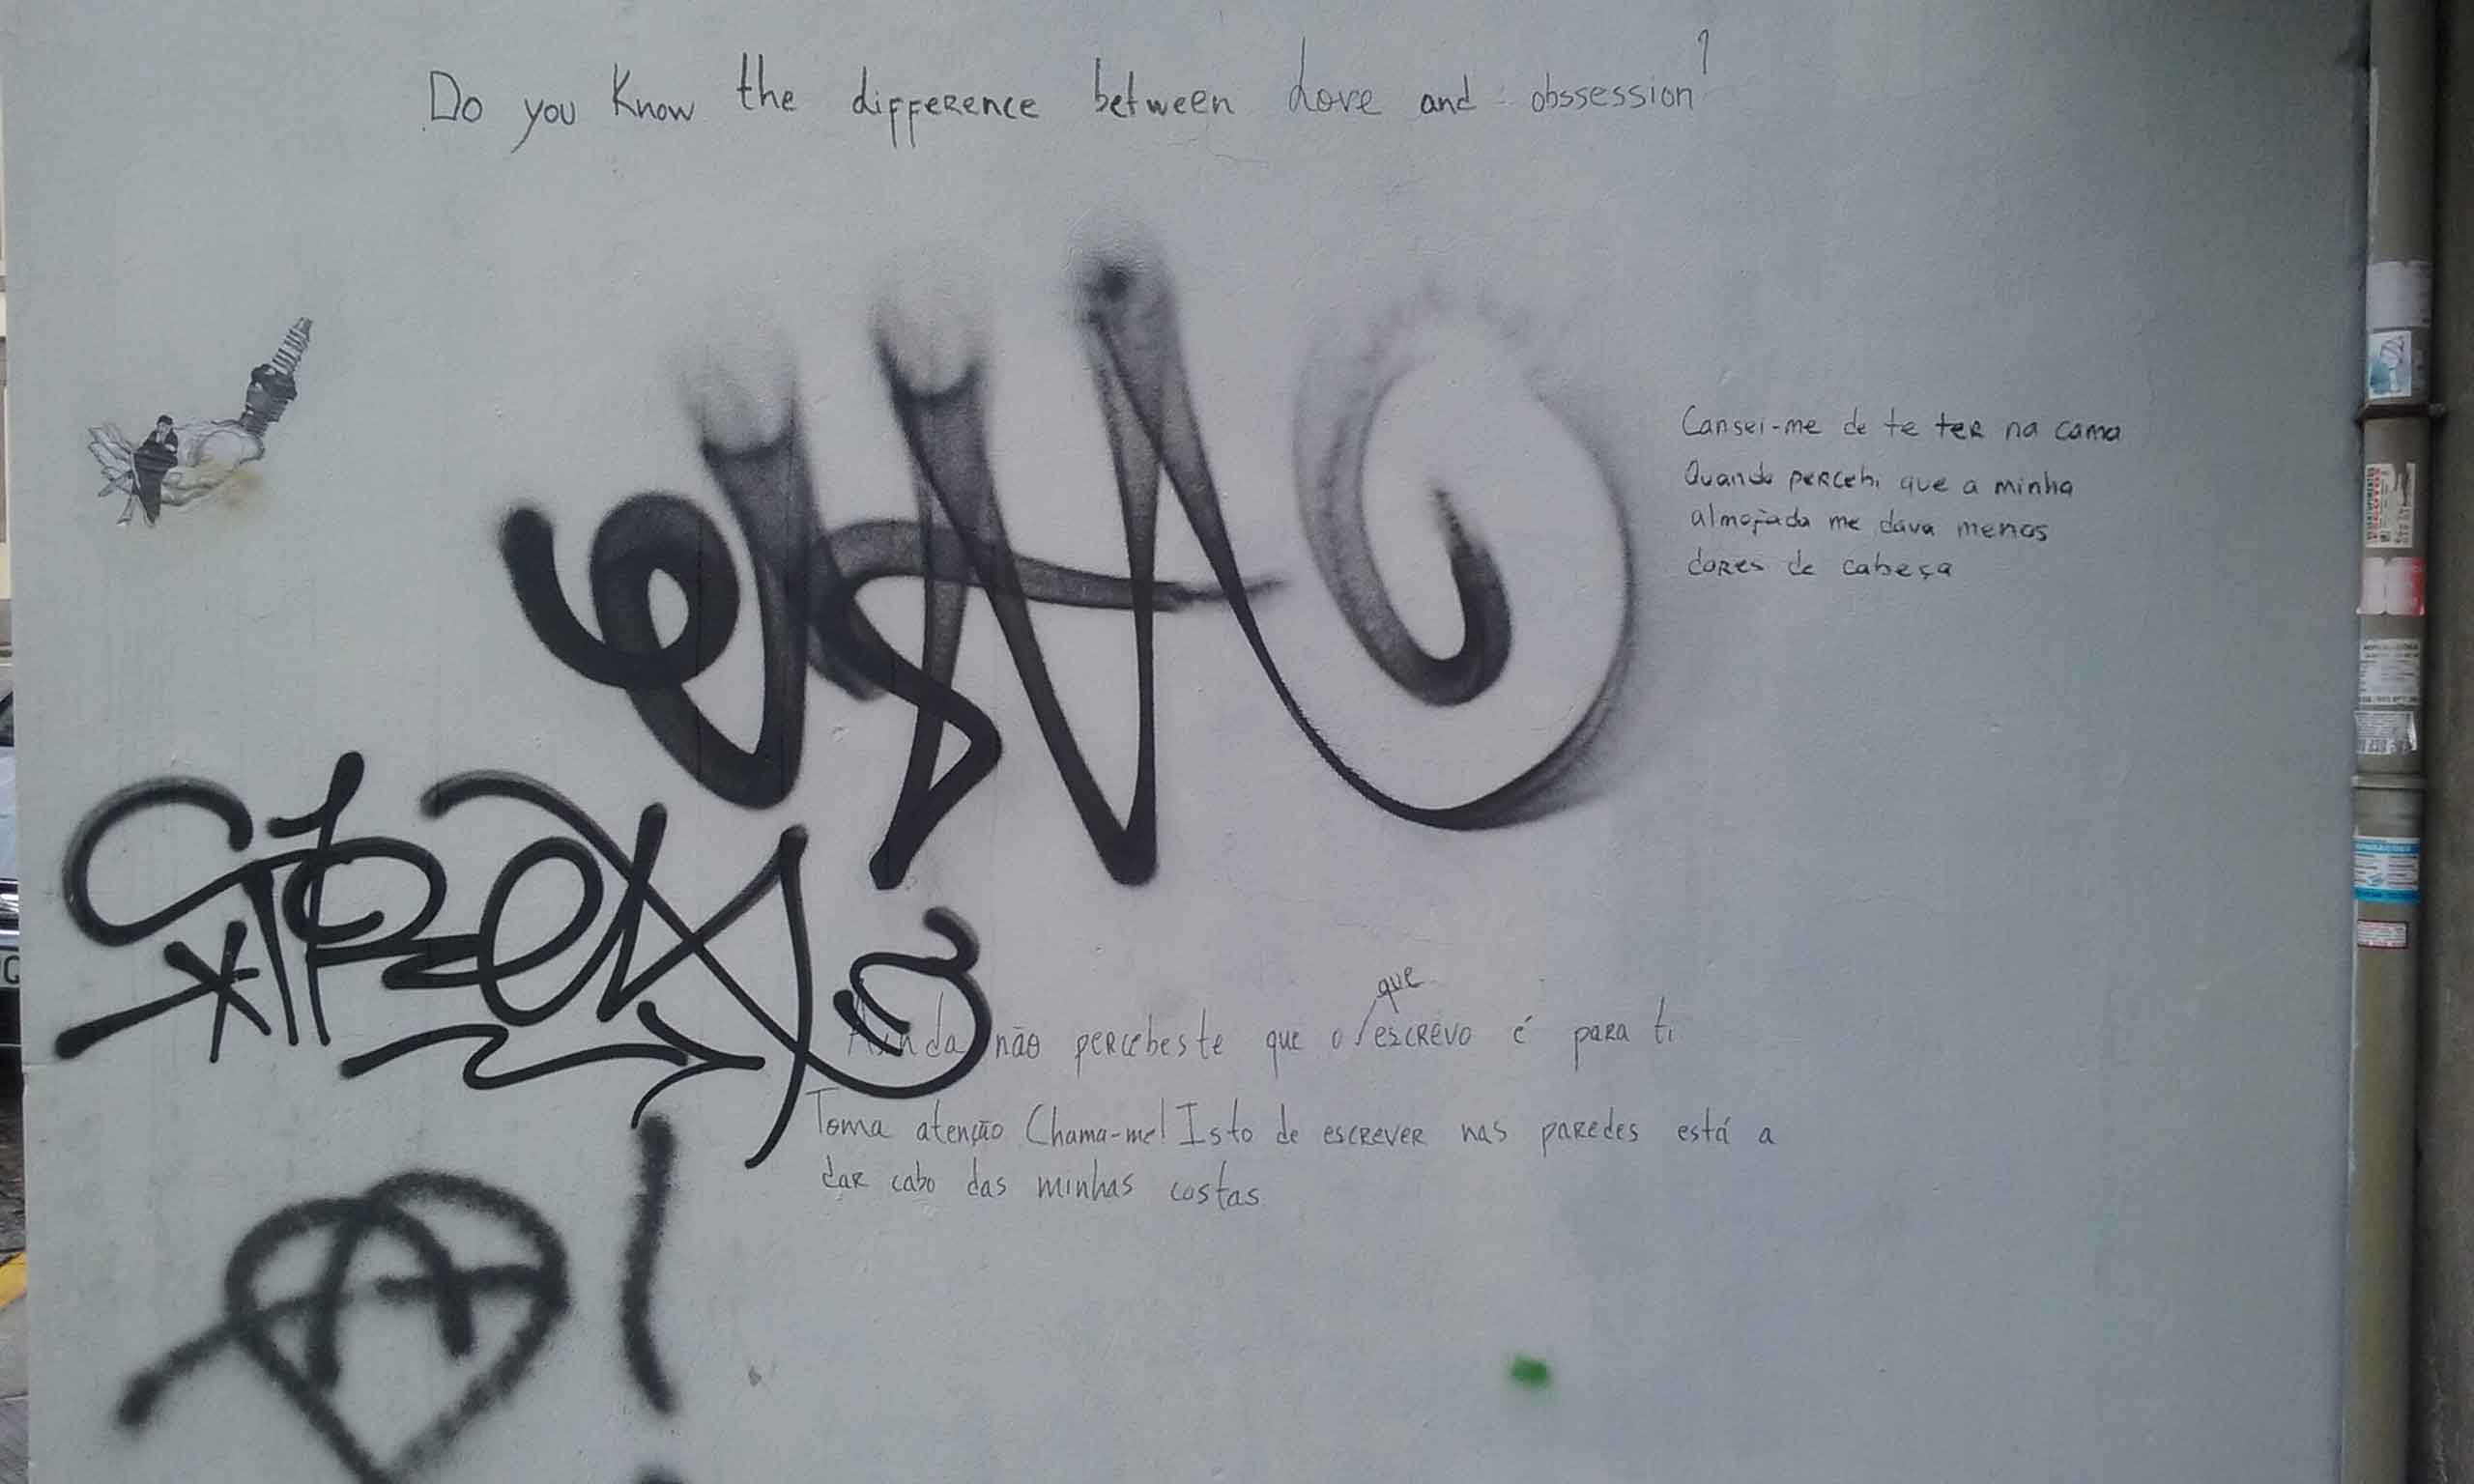 Do you Know the difference between Love and obssession?
Cansei-me de te ter na cama
Quando percebi que a minha
almofada me dava menos
dores de cabeça
que
Ainda não percebeste que o escrevo é para ti
Toma atenção Chama-me! Isto de escrever nas paredes está a
dar cabo das minhas costas